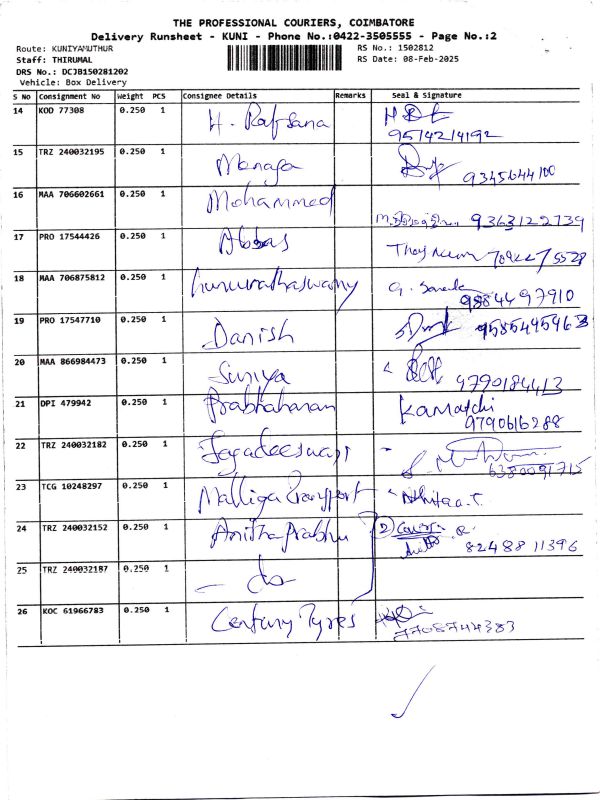 THE PROFESSIONAL COURIERS, COIMBATORE
Delivery Runsheet - KUNI - Phone No.:0422-3505555 - Page No.:2
Route: KUNIYAMUTHUR RS No.: 1502812
Staff: THIRUMAL RS Date: 08-Feb-2025
DRS No.: DCJB150281202
Vehicle: Box Delivery
S No Consignment No Weight PCS Consignee Details Remarks Seal & Signature
14 KOD 77308 0.250 1 H. Rafsana
9514214192
15 TRZ 240032195 0.250 1 Menaga
9345644100
16 MAA 706602661 0.250 1 Mohammed
9363122739
17 PRO 17544426 0.250 1 Abbas
18 MAA 706875812 0.250 1
9884497910
19 PRO 17547710 0.250 1 Danish
9585445463
20 MAA 866984473 0.250 1 Suriya
4790184413
21 DPI 479942 0.250 1 Prabhaharan Kamatchi
9790616288
22 TRZ 240032182 0.250 1 Jegadeeswari
6380091715
23 TCG 10248297 0.250 1 Malliga Transport
24 TRZ 240032152 0.250 1 Anitha Prabhu
8248811396
25 TRZ 240032187 0.250 1 - do -
26 KOC 61966783 0.250 1 Century Tyres
7708744383